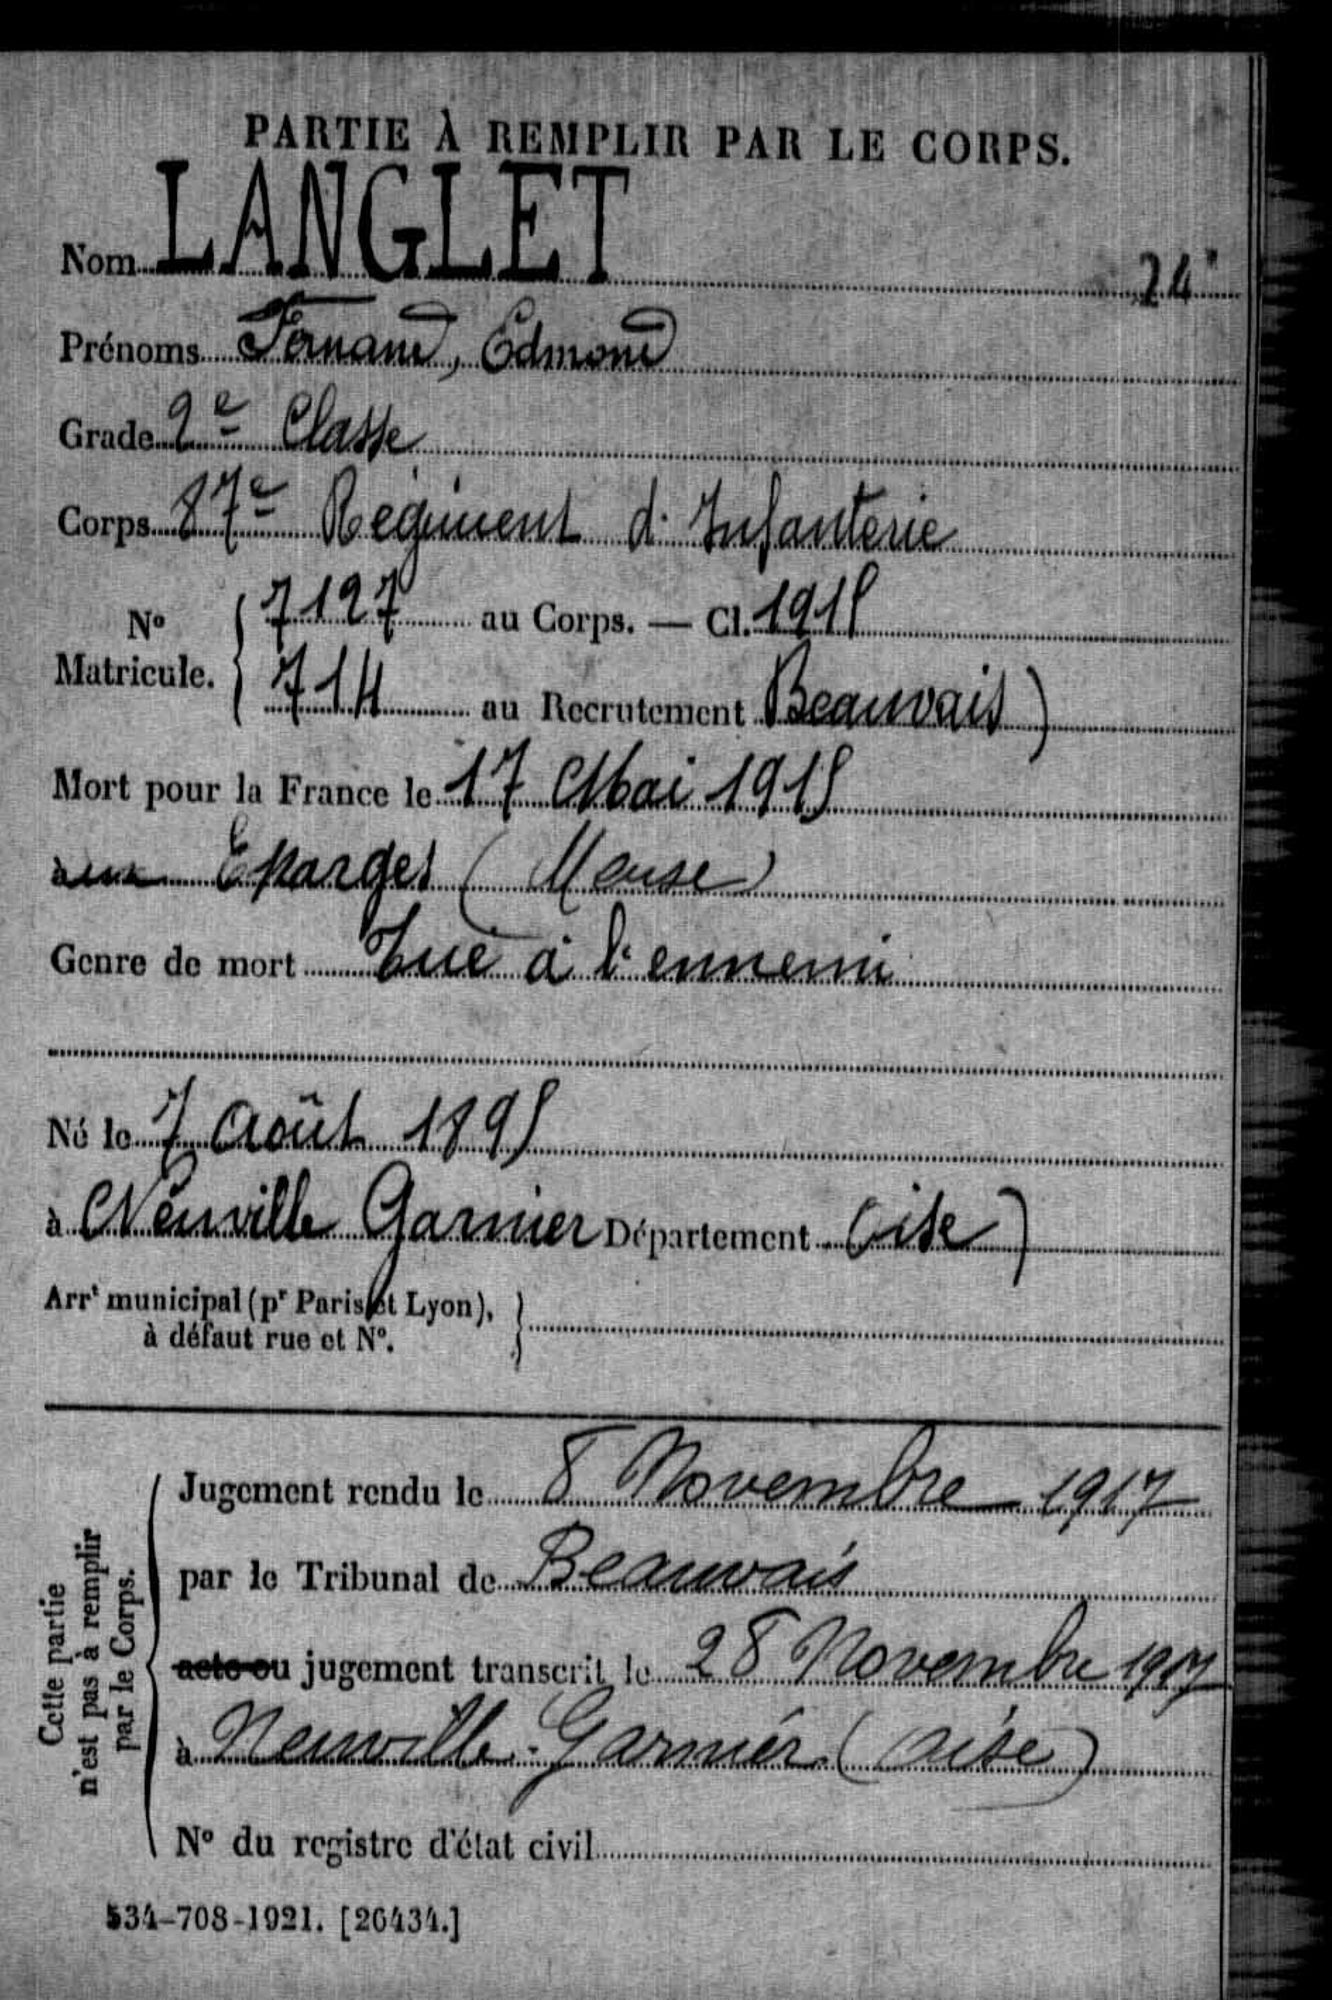 PARTIE À REMPLIR PAR LE CORPS.
Nom LANGLET
Prénoms Fernand, Edmond
Grade 2e Classe
Corps 87e Régiment d'Infanterie
N° Matricule. { 7127 au Corps. — Cl. 1915
714 au Recrutement Beauvais)
Mort pour la France le 17 Mai 1915
aux Eparges (Meuse)
Genre de mort Tué à l'ennemi
Né le 7 Août 1895
à Neuville Garnier Département Oise)
Arrt municipal (pr Paris et Lyon),
à défaut rue et N°.
Cette partie n'est pas à remplir par le Corps.
Jugement rendu le 8 Novembre 1917
par le Tribunal de Beauvais
acte ou jugement transcrit le 28 Novembre 1917
à Neuville-Garnier (Oise)
N° du registre d'état civil
534-708-1921. [26434.]